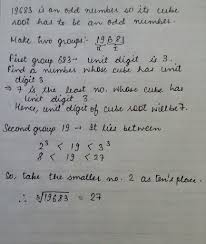 19683 is an odd number so its cube
root has to be an odd number.
Make two groups:- 19 683
II I
First group 683 → unit digit is 3.
Find a number whose cube has unit
digit 3
⇒ 7 is the least no. whose cube has
unit digit 3
Hence, unit digit of cube root will be 7.
Second group 19 → It lies between
2³ < 19 < 3³
8 < 19 < 27
So, take the smaller no. 2 as ten's place.
∴ ∛19683 = 27